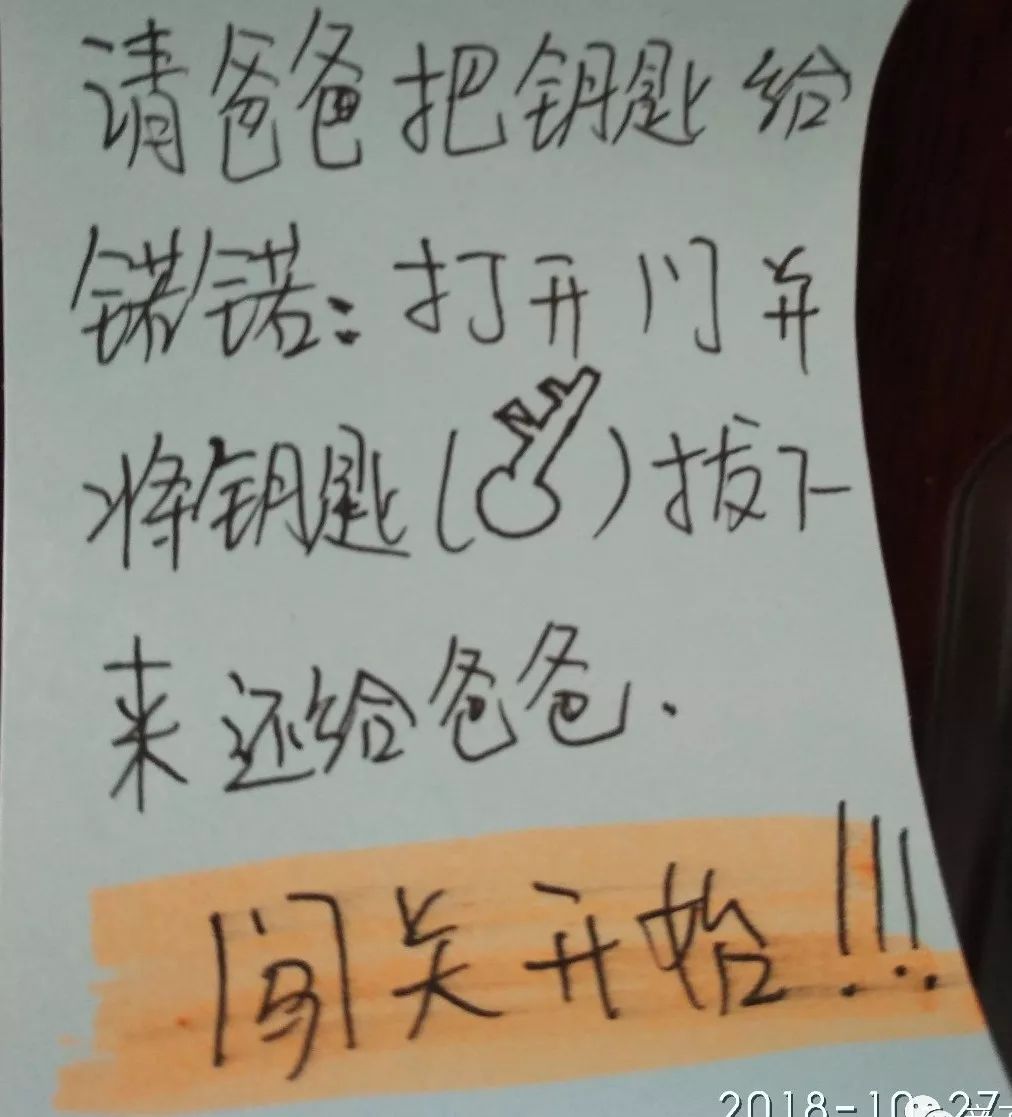 请爸爸把钥匙给
锘锘：打开门并
将钥匙（）拔下
来还给爸爸.
闯关开始!!!
2018-10-27